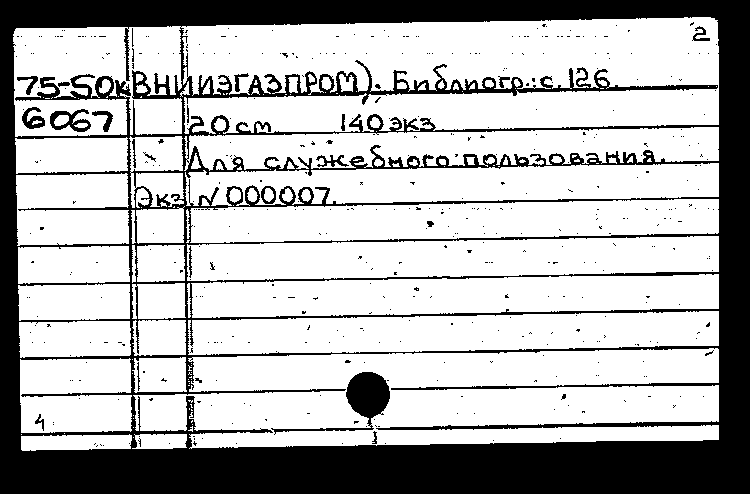 2
75-50к ВНИИЭГАЗПРОМ). Библиогр.: с. 126.
6067 20 см 140 экз
Для служебного пользования.
Экз. N 000007.
4